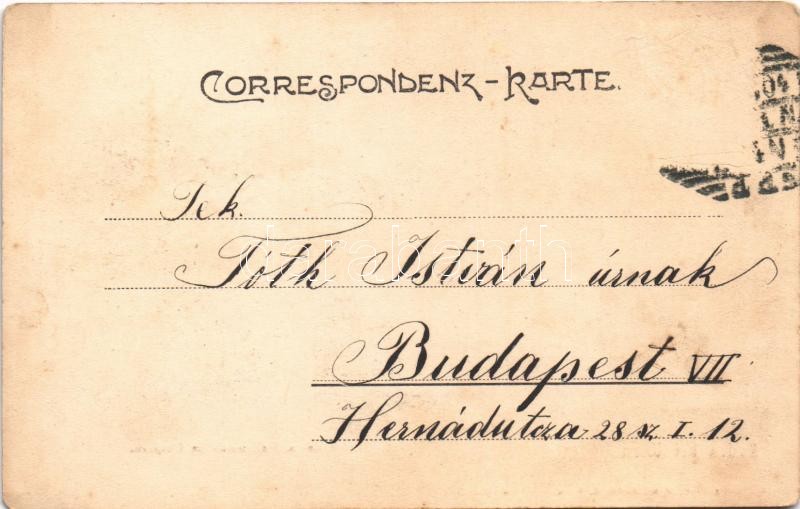 CORRESPONDENZ-KARTE.
Tek.
Tóth István úrnak
Budapest VII
Hernádutcza 28 sz. I. 12.
darabanth